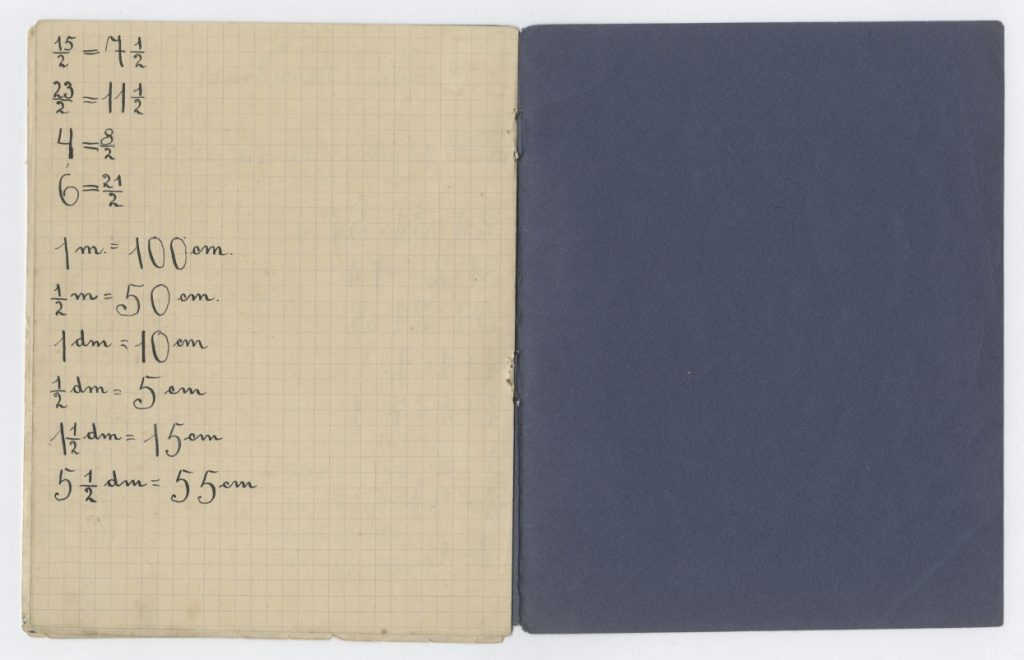 15/2 = 7 1/2
23/2 = 11 1/2
4 = 8/2
6 = 21/2
1 m. = 100 cm.
1/2 m = 50 cm.
1 dm = 10 cm
1/2 dm = 5 cm
1 1/2 dm = 15 cm
5 1/2 dm = 55 cm